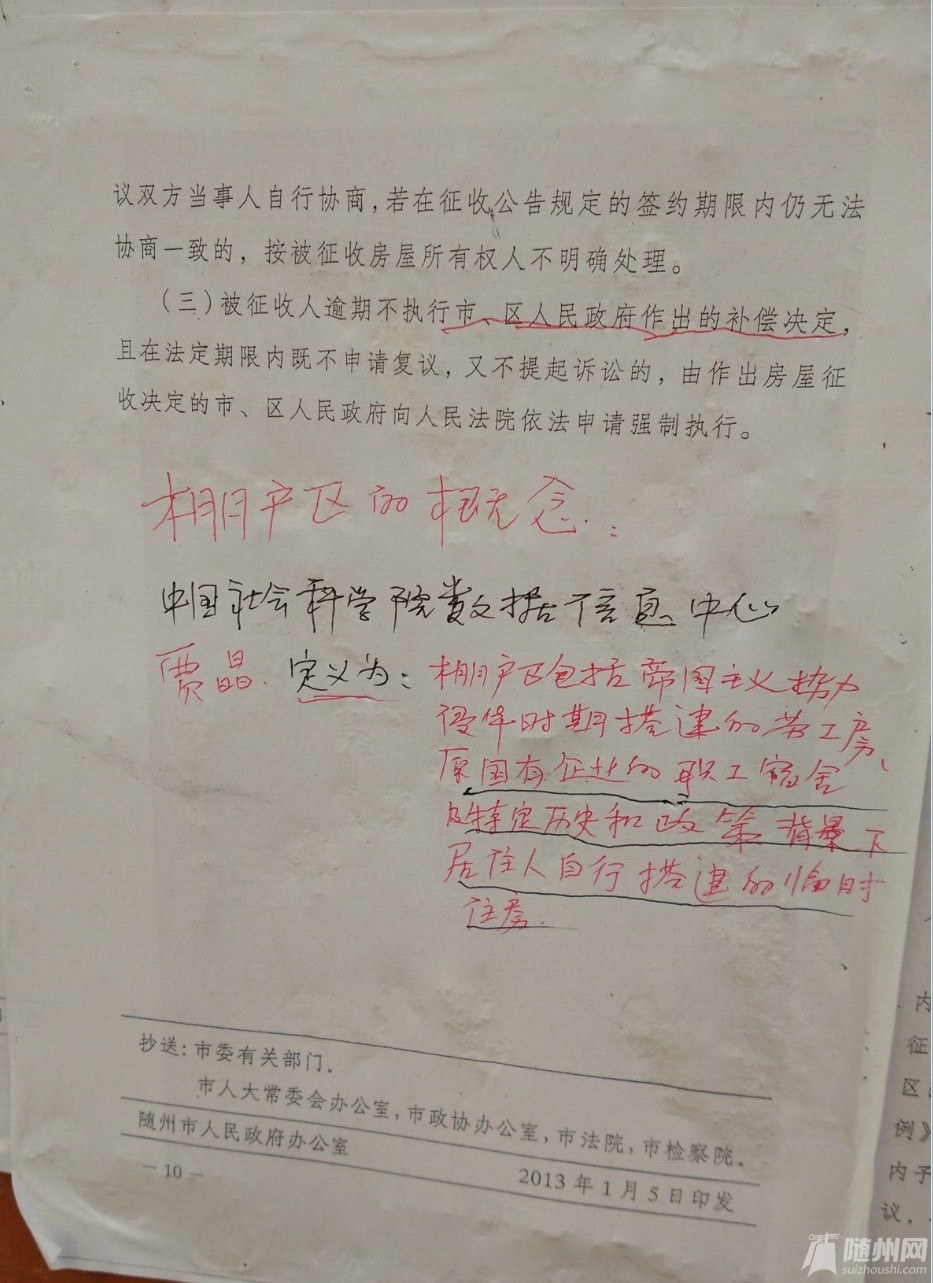 议双方当事人自行协商,若在征收公告规定的签约期限内仍无法
协商一致的，按被征收房屋所有权人不明确处理。
（三）被征收人逾期不执行市、区人民政府作出的补偿决定，
且在法定期限内既不申请复议，又不提起诉讼的，由作出房屋征
收决定的市、区人民政府向人民法院依法申请强制执行。
棚户区的概念：
中国社会科学院数据信息中心
贾晶 定义为：棚户区包括帝国主义势力
侵华时期搭建的劳工房、
原国有企业的职工宿舍
及特定历史和政策背景下
居住人自行搭建的临时
住房.
抄送：市委有关部门.
市人大常委会办公室，市政协办公室，市法院，市检察院.
随州市人民政府办公室
2013年1月5日印发
— 10 —
内
征
区
例》
内予
议，
随州网
suizhoushi.com